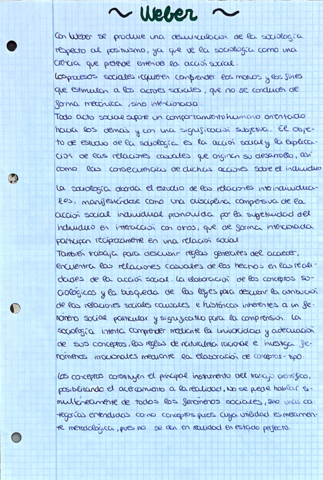 ~ Weber ~
Con Weber se produce una desvinculación de la sociología
respecto al positivismo, ya que ve la sociología como una
ciencia que pretende entender la acción social.
Los procesos sociales requieren comprender los motivos y los fines
que estimulan a los actores sociales, que no se conducen de
forma mecánica, sino intencionada.
Todo acto social supone un comportamiento humano orientado
hacia los demás y con una significación subjetiva. El obje-
to de estudio de la sociología es la acción social y la explica-
ción de las relaciones causales que originan su desarrollo, así
como las consecuencias de dichas acciones sobre el individuo
La sociología aborda el estudio de las relaciones interindividua-
les, manifestándose como una disciplina comprensiva de la
acción social individual promovida por la subjetividad del
individuo en interacción con otros, que de forma intencionada
participan recíprocamente en una relación social
También trabaja para descubrir reglas generales del acaecer,
encuentra las relaciones causales de los hechos en las reali-
dades de la acción social. La elaboración de los conceptos so-
ciológicos y la búsqueda de las leyes para descubrir la contribución
de las relaciones sociales causales e históricas inherentes a un fe-
nómeno social particular y significativo para la comprensión. La
sociología intenta comprender mediante la univocidad y adecuación
de sus conceptos, las reglas de naturaleza racional e investiga fe-
nómenos irracionales mediante la elaboración de conceptos-tipo.
Los conceptos constituyen el principal instrumento del trabajo científico,
posibilitando el acercamiento a la realidad. No se puede hablar si-
multáneamente de todos los fenómenos sociales, sino más ca-
tegorías entendidas como conceptos puros cuya utilidad es meramen-
te metodológica, pues no se dan en realidad en estado perfecto.